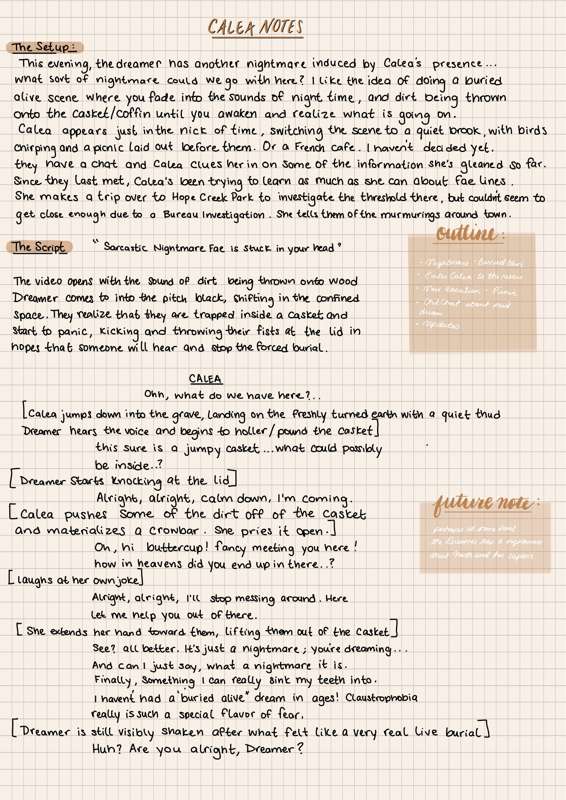 CALEA NOTES
The Setup:
This evening, the dreamer has another nightmare induced by Calea's presence...
what sort of nightmare could we go with here? I like the idea of doing a buried
alive scene where you fade into the sounds of night time, and dirt being thrown
onto the casket/coffin until you awaken and realize what is going on.
Calea appears just in the nick of time, switching the scene to a quiet brook, with birds
chirping and a picnic laid out before them. Or a French cafe. I haven't decided yet.
they have a chat and Calea clues her in on some of the information she's gleaned so far.
Since they last met, Calea's been trying to learn as much as she can about fae lines.
She makes a trip over to Hope Creek Park to investigate the threshold there, but couldn't seem to
get close enough due to a Bureau Investigation. She tells them of the murmurings around town.
outline:
The Script "Sarcastic Nightmare Fae is stuck in your head"
• Updates
The video opens with the sound of dirt being thrown onto wood
Dreamer comes to into the pitch black, shifting in the confined
space. They realize that they are trapped inside a casket and
start to panic, kicking and throwing their fists at the lid in
hopes that someone will hear and stop the forced burial.
CALEA
Ohh, what do we have here?..
[Calea jumps down into the grave, landing on the freshly turned earth with a quiet thud
Dreamer hears the voice and begins to holler/pound the casket]
this sure is a jumpy casket...what could possibly
be inside..?
[Dreamer starts knocking at the lid]
Alright, alright, calm down, I'm coming.
[Calea pushes some of the dirt off of the casket
and materializes a crowbar. She pries it open.]
Oh, hi buttercup! fancy meeting you here!
how in heavens did you end up in there..?
[laughs at her own joke]
Alright, alright, I'll stop messing around. Here
let me help you out of there.
[She extends her hand toward them, lifting them out of the casket]
See? all better. It's just a nightmare; you're dreaming...
And can I just say, what a nightmare it is.
Finally, something I can really sink my teeth into.
I haven't had a "buried alive" dream in ages! Claustrophobia
really is such a special flavor of fear.
[Dreamer is still visibly shaken after what felt like a very real live burial]
Huh? Are you alright, Dreamer?
future note: